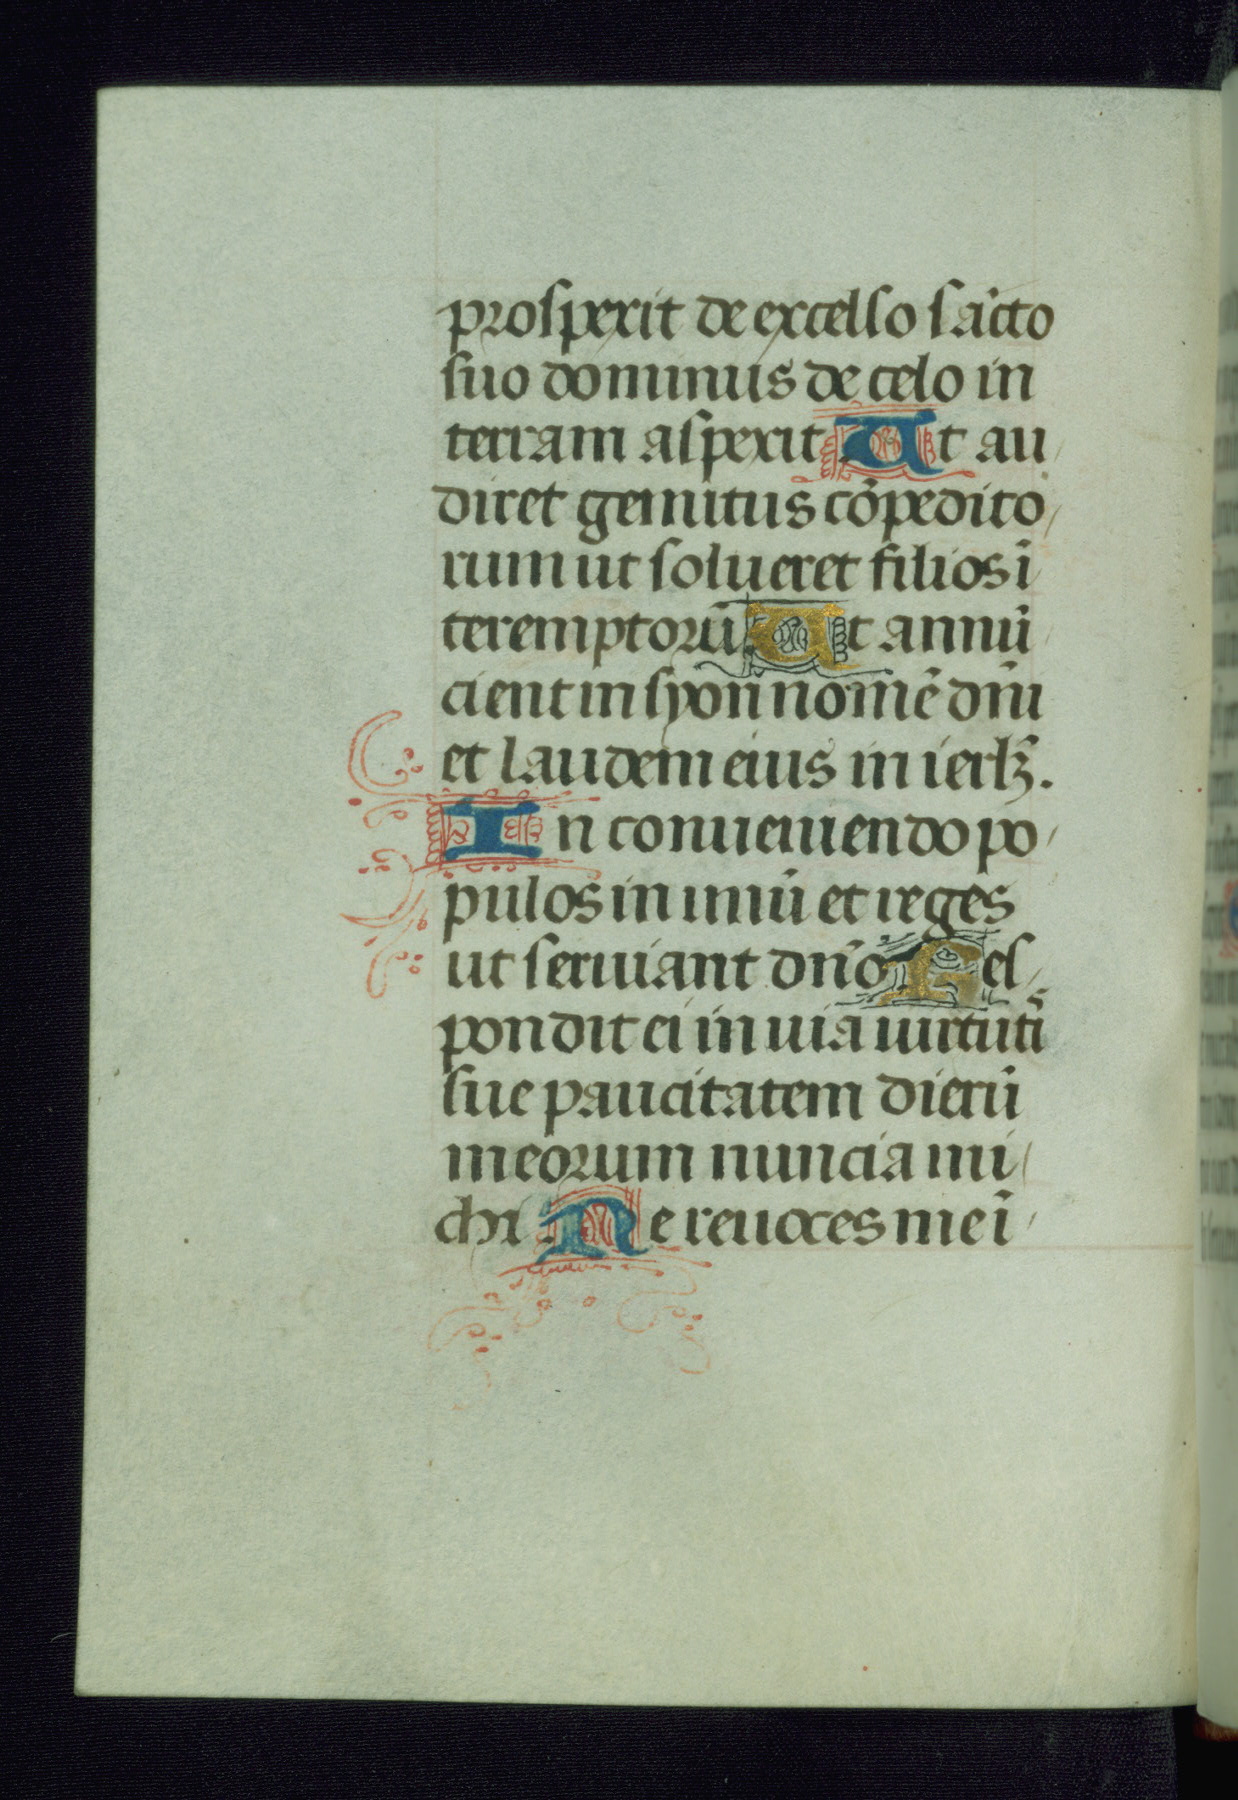 prosperit de excelso sācto
suo dominus de celo in
terram asperit Ut au
diret gemitus cōpedito
rum ut solueret filios ī
teremptorū Ut annū
cient in syon nomē dn̄i
et laudem eius in ierlꝫ̄.
In conueniendo po
pulos in unū et reges
ut seruiant dn̄o Res
pondit ei in uia uirtutī
sue paucitatem dierū
meorum nuncia mi
chi Ne reuoces me ī